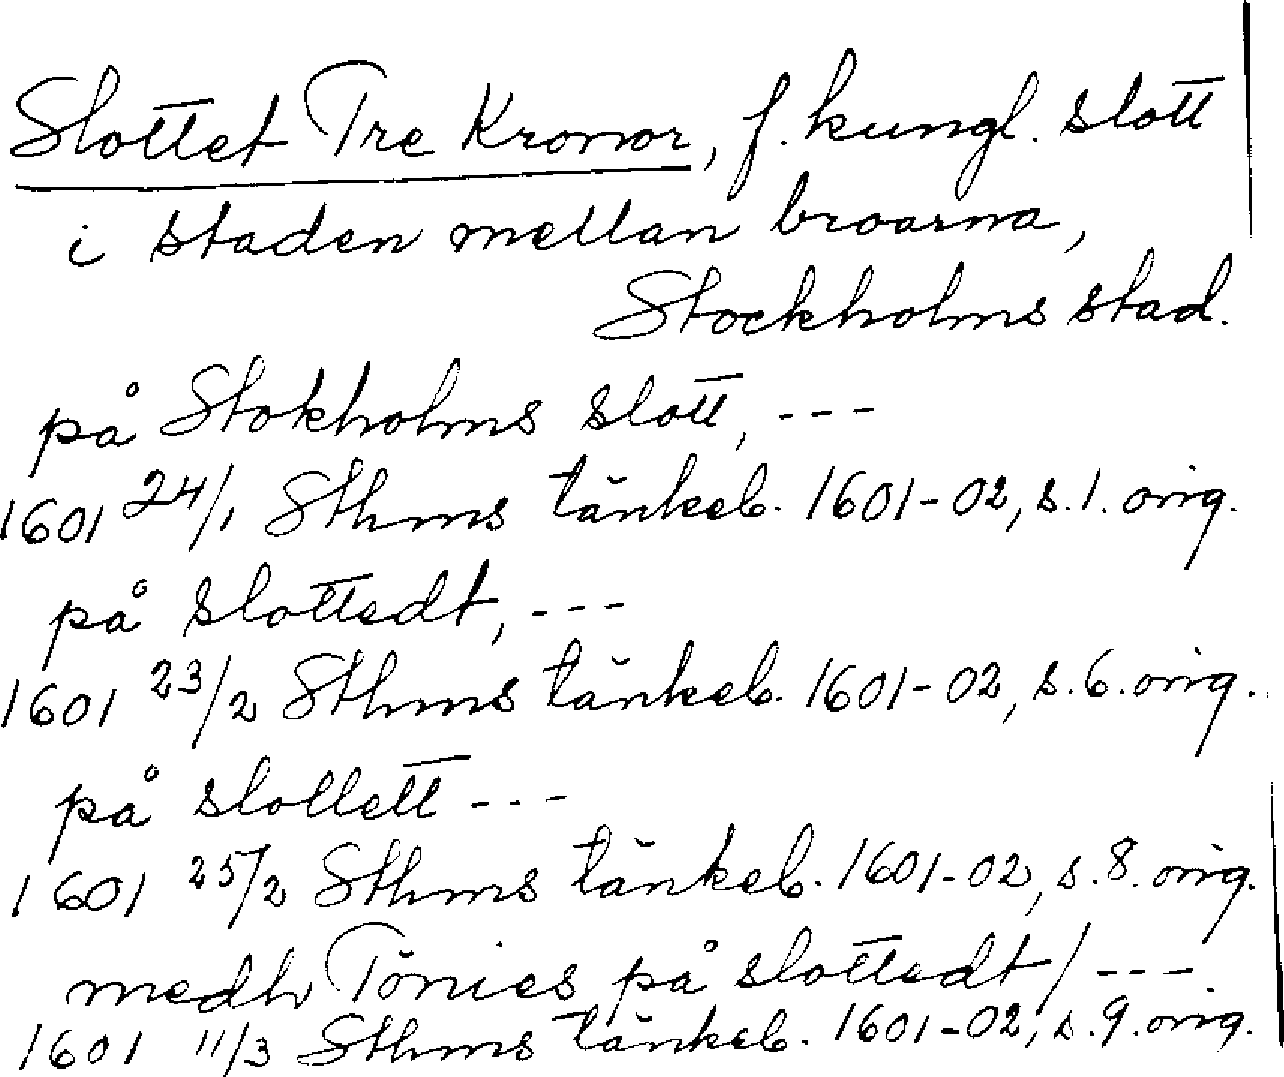 Slottet Tre Kronor, f. kungl. slott
i staden mellan broarna,
Stockholms stad.
på Stokholms slott, ---
1601 24/1 Sthms tänkeb. 1601-02, s.1. orig.
på slottedt, ---
1601 23/2 Sthms tänkeb. 1601-02, s.6. orig.
på slottett ---
1601 25/2 Sthms tänkeb. 1601-02, s.8. orig.
medh Tönies på slottedt/ ---
1601 11/3 Sthms tänkeb. 1601-02, s.9. orig.